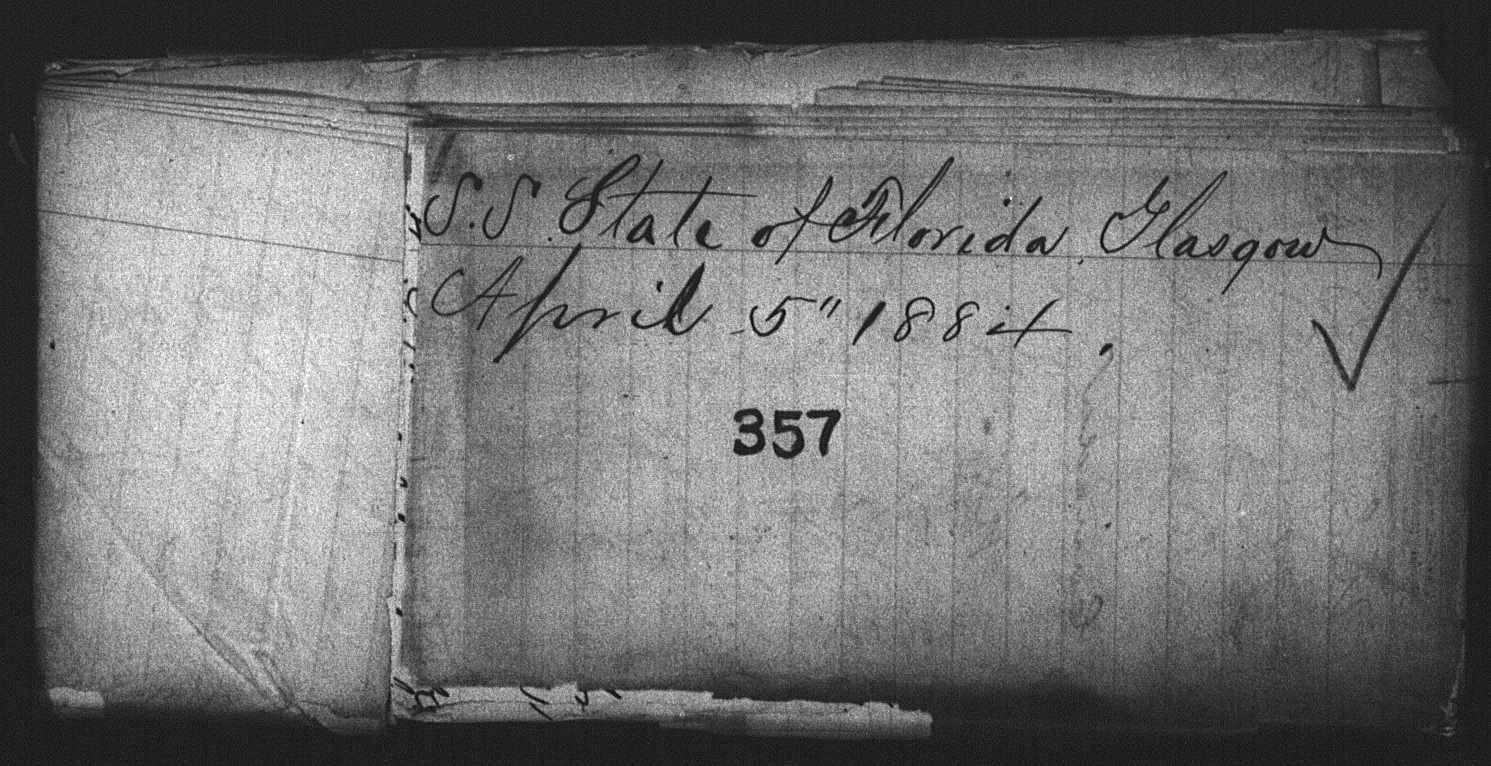 S.S. State of Florida, Glasgow
April 5" 1884.
357